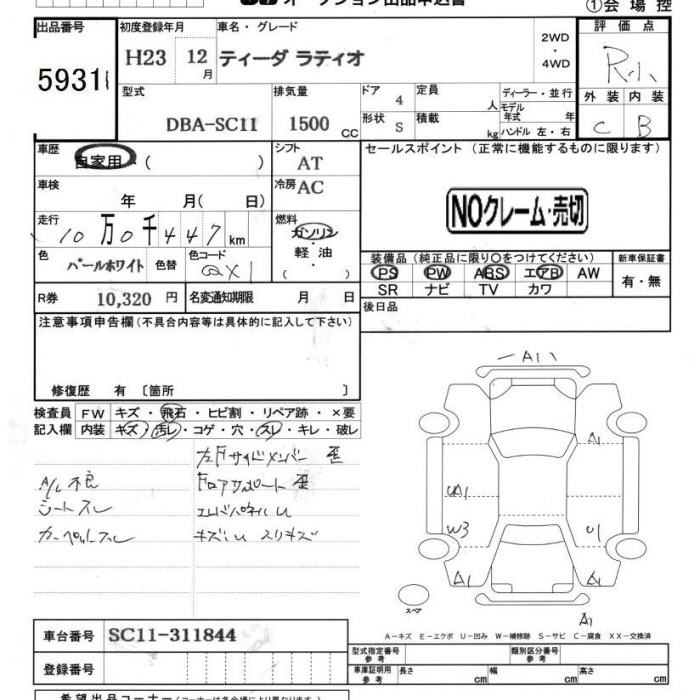 オークション出品申込書
①会場控
出品番号
5931
初度登録年月
H23 12月
車名・グレード
ティーダ ラティオ
2WD
・
4WD
評価点
外装 内装
C B
型式
DBA-SC11
排気量
1500 CC
ドア 4
形状 S
定員 人
積載 kg
ディーラー・並行
モデル年式 年
ハンドル 左・右
車歴
自家用・( )
シフト
AT
車検
年 月( 日)
冷房 AC
走行
10万0千447km
燃料
ガソリン
・
軽油
( )
色
パールホワイト
色替
色コード
QX1
R券 10,320 円
名変通知期限 月 日
セールスポイント (正常に機能するものに限ります)
NOクレーム・売切
装備品(純正品に限り○をつけてください)
PS PW ABS エアB AW
SR ナビ TV カワ
新車保証書
有・無
後日品
注意事項申告欄(不具合内容等は具体的に記入して下さい)
修復歴 有〔箇所 〕
検査員記入欄
FW キズ・飛石・ヒビ割・リペア跡・×要
内装 キズ・汚レ・コゲ・穴・スレ・キレ・破レ
左Fサイドメンバー 歪
A/C不良
Fコアサポート 歪
シートスレ
エンドパネルU
カーペットスレ
キズU スリキズ
A1
A1
UA1
W3
U1
A1
A1
スペア
A1
A-キズ E-エクボ U-凹み W-補修跡 S-サビ C-腐食 XX-交換済
車台番号 SC11-311844
登録番号
型式指定番号
参考
類別区分番号
参考
車庫証明用
参考
長さ cm 幅 cm 高さ cm
希望出品コーナー(コーナーは各会場により異なります)